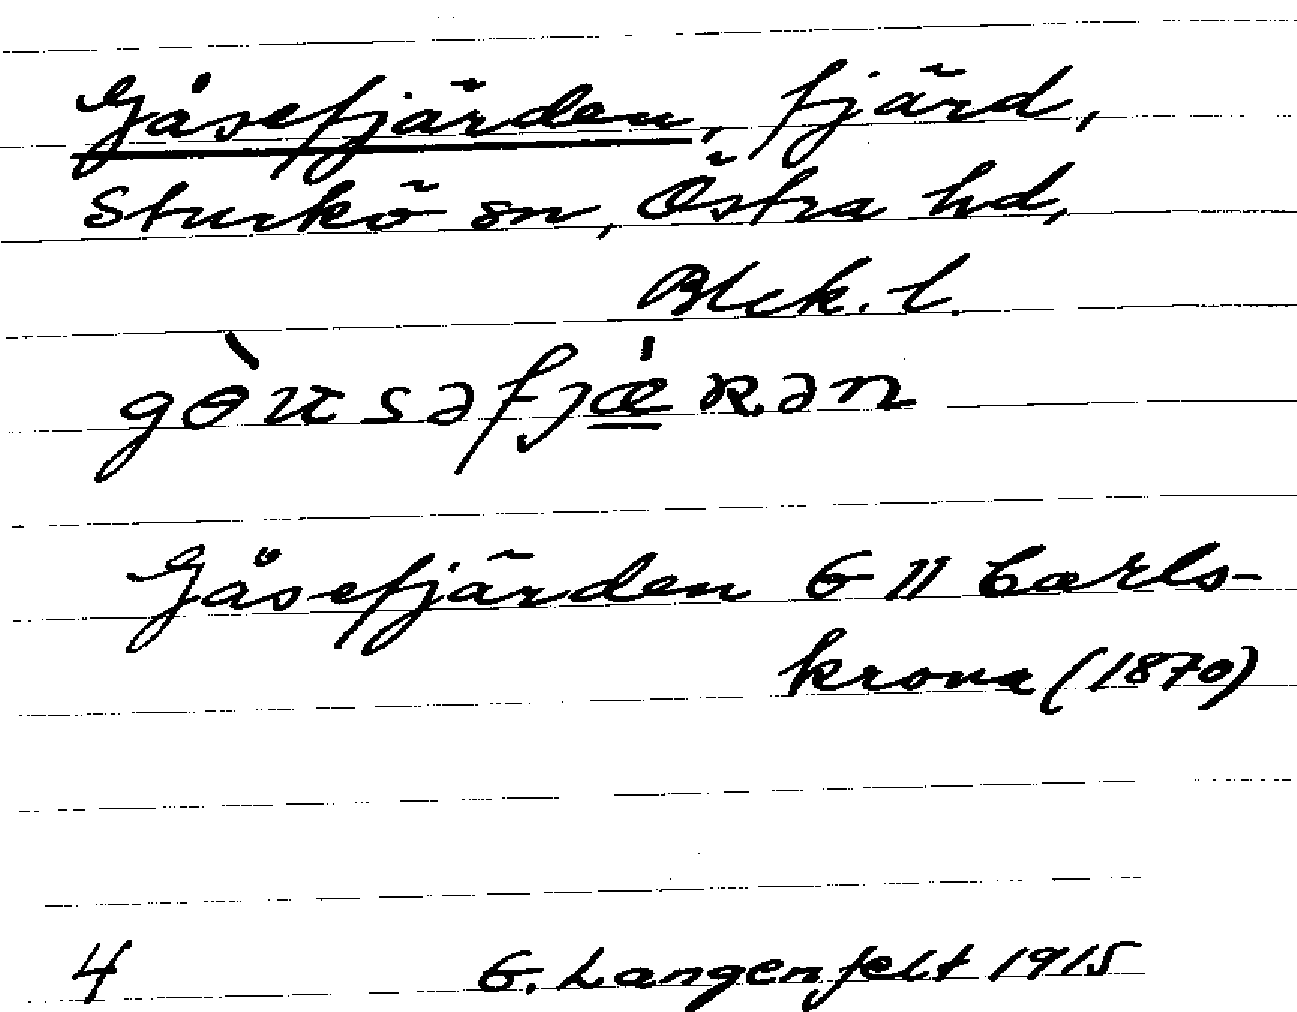 Gåsefjärden, fjärd,
Sturkö sn, Östra hd,
Blek. l.
gɵ̀usəfjǽ̲ʀən
Gåsefjärden G II Carls-
krona (1870)
4 G. Langenfelt 1915